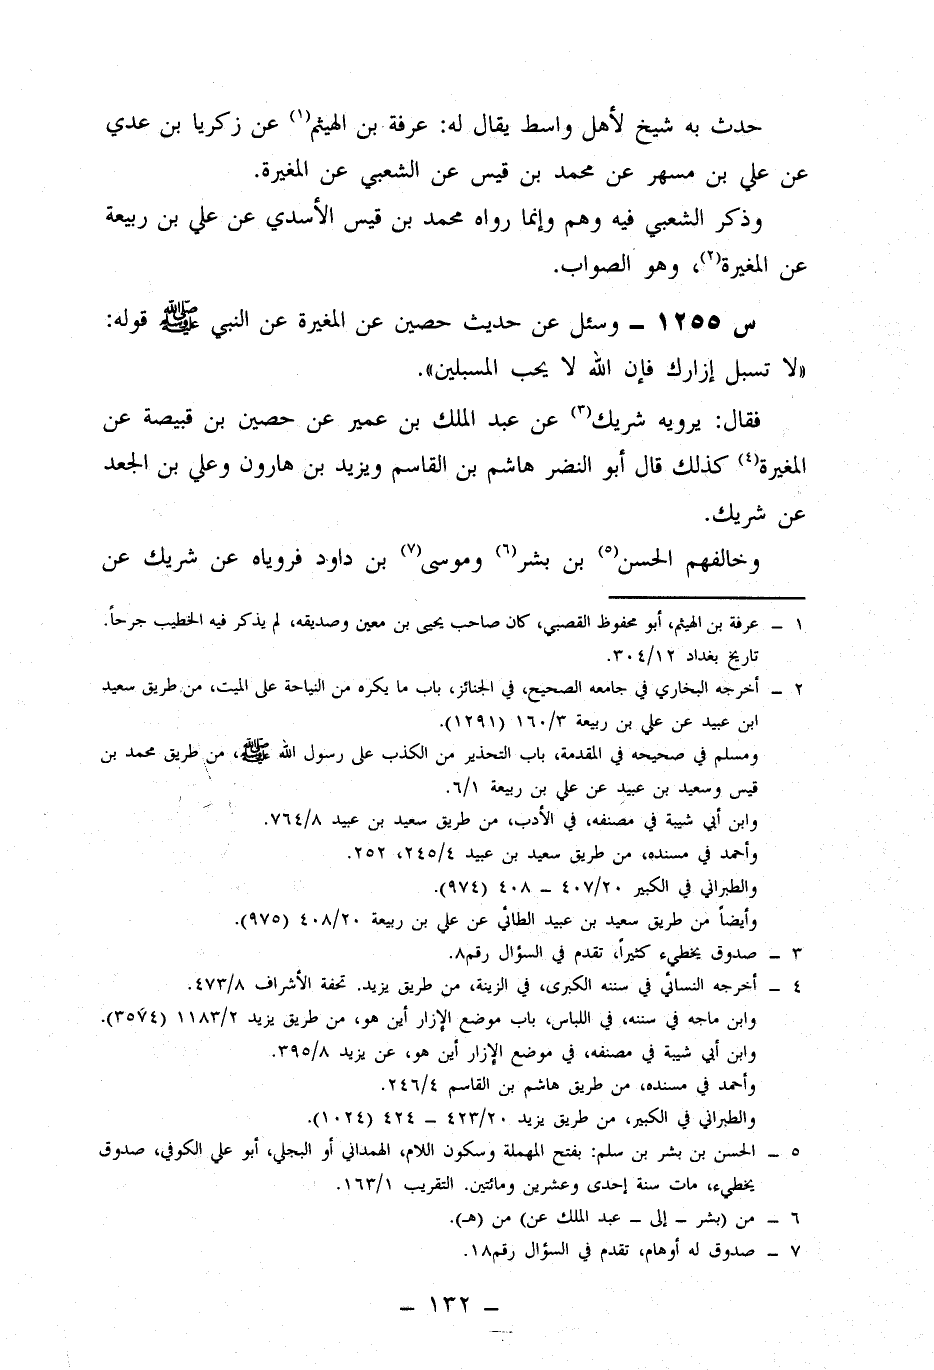 حدث به شيخ لأهل واسط يقال له: عرفة بن الهيثم(١) عن زكريا بن عدي
عن علي بن مسهر عن محمد بن قيس عن الشعبي عن المغيرة.
وذكر الشعبي فيه وهم وإنما رواه محمد بن قيس الأسدي عن علي بن ربيعة
عن المغيرة(٢)، وهو الصواب.
س ١٢٥٥ - وسئل عن حديث حصين عن المغيرة عن النبي ﷺ قوله:
«لا تسبل إزارك فإن الله لا يحب المسبلين».
فقال: يرويه شريك(٣) عن عبد الملك بن عمير عن حصين بن قبيصة عن
المغيرة(٤) كذلك قال أبو النضر هاشم بن القاسم ويزيد بن هارون وعلي بن الجعد
عن شريك.
وخالفهم الحسن(٥) بن بشر(٦) وموسى(٧) بن داود فروياه عن شريك عن
١ - عرفة بن الهيثم، أبو محفوظ القصبي، كان صاحب يحيى بن معين وصديقه، لم يذكر فيه الخطيب جرحاً.
تاريخ بغداد ٣٠٤/١٢.
٢ - أخرجه البخاري في جامعه الصحيح، في الجنائز، باب ما يكره من النياحة على الميت، من طريق سعيد
ابن عبيد عن علي بن ربيعة ١٦٠/٣ (١٢٩١).
ومسلم في صحيحه في المقدمة، باب التحذير من الكذب على رسول الله ﷺ، من طريق محمد بن
قيس وسعيد بن عبيد عن علي بن ربيعة ٦/١.
وابن أبي شيبة في مصنفه، في الأدب، من طريق سعيد بن عبيد ٧٦٤/٨.
وأحمد في مسنده، من طريق سعيد بن عبيد ٢٤٥/٤، ٢٥٢.
والطبراني في الكبير ٤٠٧/٢٠ - ٤٠٨ (٩٧٤).
وأيضاً من طريق سعيد بن عبيد الطائي عن علي بن ربيعة ٤٠٨/٢٠ (٩٧٥).
٣ - صدوق يخطيء كثيراً، تقدم في السؤال رقم٨.
٤ - أخرجه النسائي في سننه الكبرى، في الزينة، من طريق يزيد. تحفة الأشراف ٤٧٣/٨.
وابن ماجه في سننه، في اللباس، باب موضع الإزار أين هو، من طريق يزيد ١١٨٣/٢ (٣٥٧٤).
وابن أبي شيبة في مصنفه، في موضع الإزار أين هو، عن يزيد ٣٩٥/٨.
وأحمد في مسنده، من طريق هاشم بن القاسم ٢٤٦/٤.
والطبراني في الكبير، من طريق يزيد ٤٢٣/٢٠ - ٤٢٤ (١٠٢٤).
٥ - الحسن بن بشر بن سلم: بفتح المهملة وسكون اللام، الهمداني أو البجلي، أبو علي الكوفي، صدوق
يخطيء، مات سنة إحدى وعشرين ومائتين. التقريب ١٦٣/١.
٦ - من (بشر - إلى - عبد الملك عن) من (هـ).
٧ - صدوق له أوهام، تقدم في السؤال رقم١٨.
- ١٣٢ -